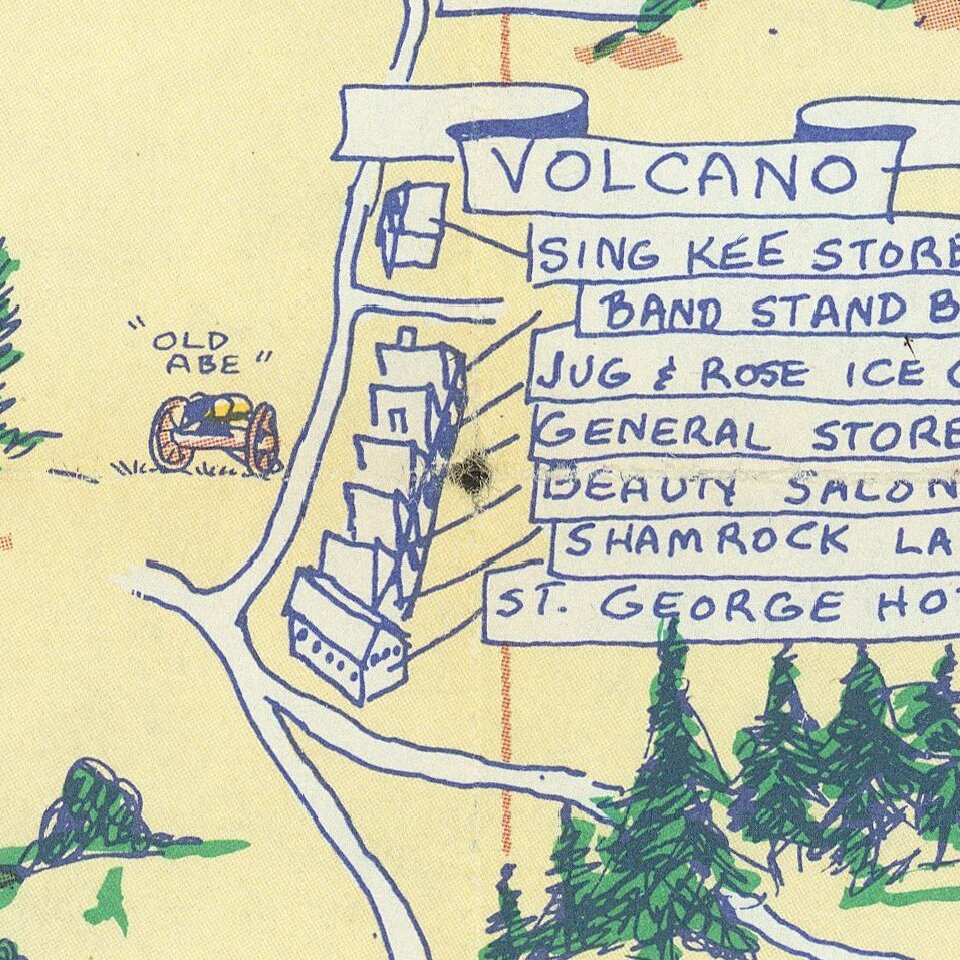 VOLCANO
SING KEE STORE
BAND STAND
JUG & ROSE ICE
"OLD
ABE"
GENERAL STORE
BEAUTY SALON
SHAMROCK
ST. GEORGE